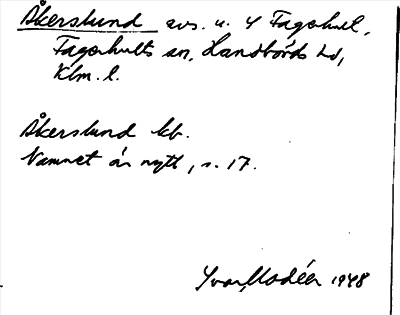 Åkerslund avs. u. 4 Fagerhult,
Fagerhults sn, Handbörds hd,
Klm. l.
Åkerslund kb.
Namnet är nytt, s. 17.
Ivar Modéer 1948